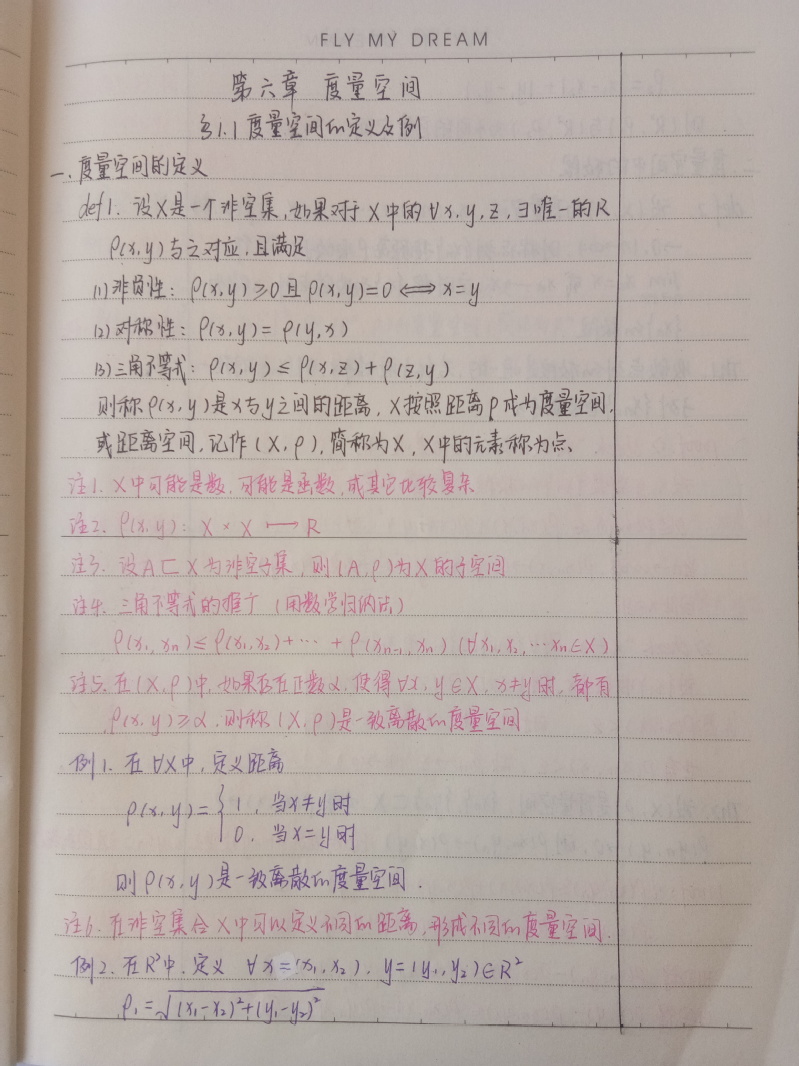 FLY MY DREAM
第六章 度量空间
§1.1 度量空间的定义及例
一、度量空间的定义
def1. 设X是一个非空集,如果对于X中的∀x,y,z,∃唯一的R
ρ(x,y)与之对应,且满足
(1)非负性: ρ(x,y)≥0且ρ(x,y)=0⟺x=y
(2)对称性: ρ(x,y)=ρ(y,x)
(3)三角不等式: ρ(x,y)≤ρ(x,z)+ρ(z,y)
则称ρ(x,y)是x与y之间的距离, X按照距离ρ成为度量空间.
或距离空间,记作(X,ρ),简称为X, X中的元素称为点.
注1. X中可能是数,可能是函数,或其它比较复杂
注2. ρ(x,y): X×X ⟼ R
注3. 设A⊏X为非空子集,则(A,ρ)为X的子空间
注4. 三角不等式的推广(用数学归纳法)
ρ(x₁,xₙ)≤ρ(x₁,x₂)+⋯+ρ(xₙ₋₁,xₙ) (∀x₁,x₂,⋯xₙ∈X)
注5. 在(X,ρ)中,如果存在正数α,使得∀x,y∈X, x≠y时,都有
ρ(x,y)≥α.则称(X,ρ)是一致离散的度量空间
例1. 在∀X中,定义距离
ρ(x,y)={1, 当x≠y时
0, 当x=y时
则ρ(x,y)是一致离散的度量空间.
注6. 在非空集合X中可以定义不同的距离,形成不同的度量空间.
例2. 在R²中,定义 ∀x=(x₁,x₂), y=(y₁,y₂)∈R²
ρ₁=√((x₁-x₂)²+(y₁-y₂)²)